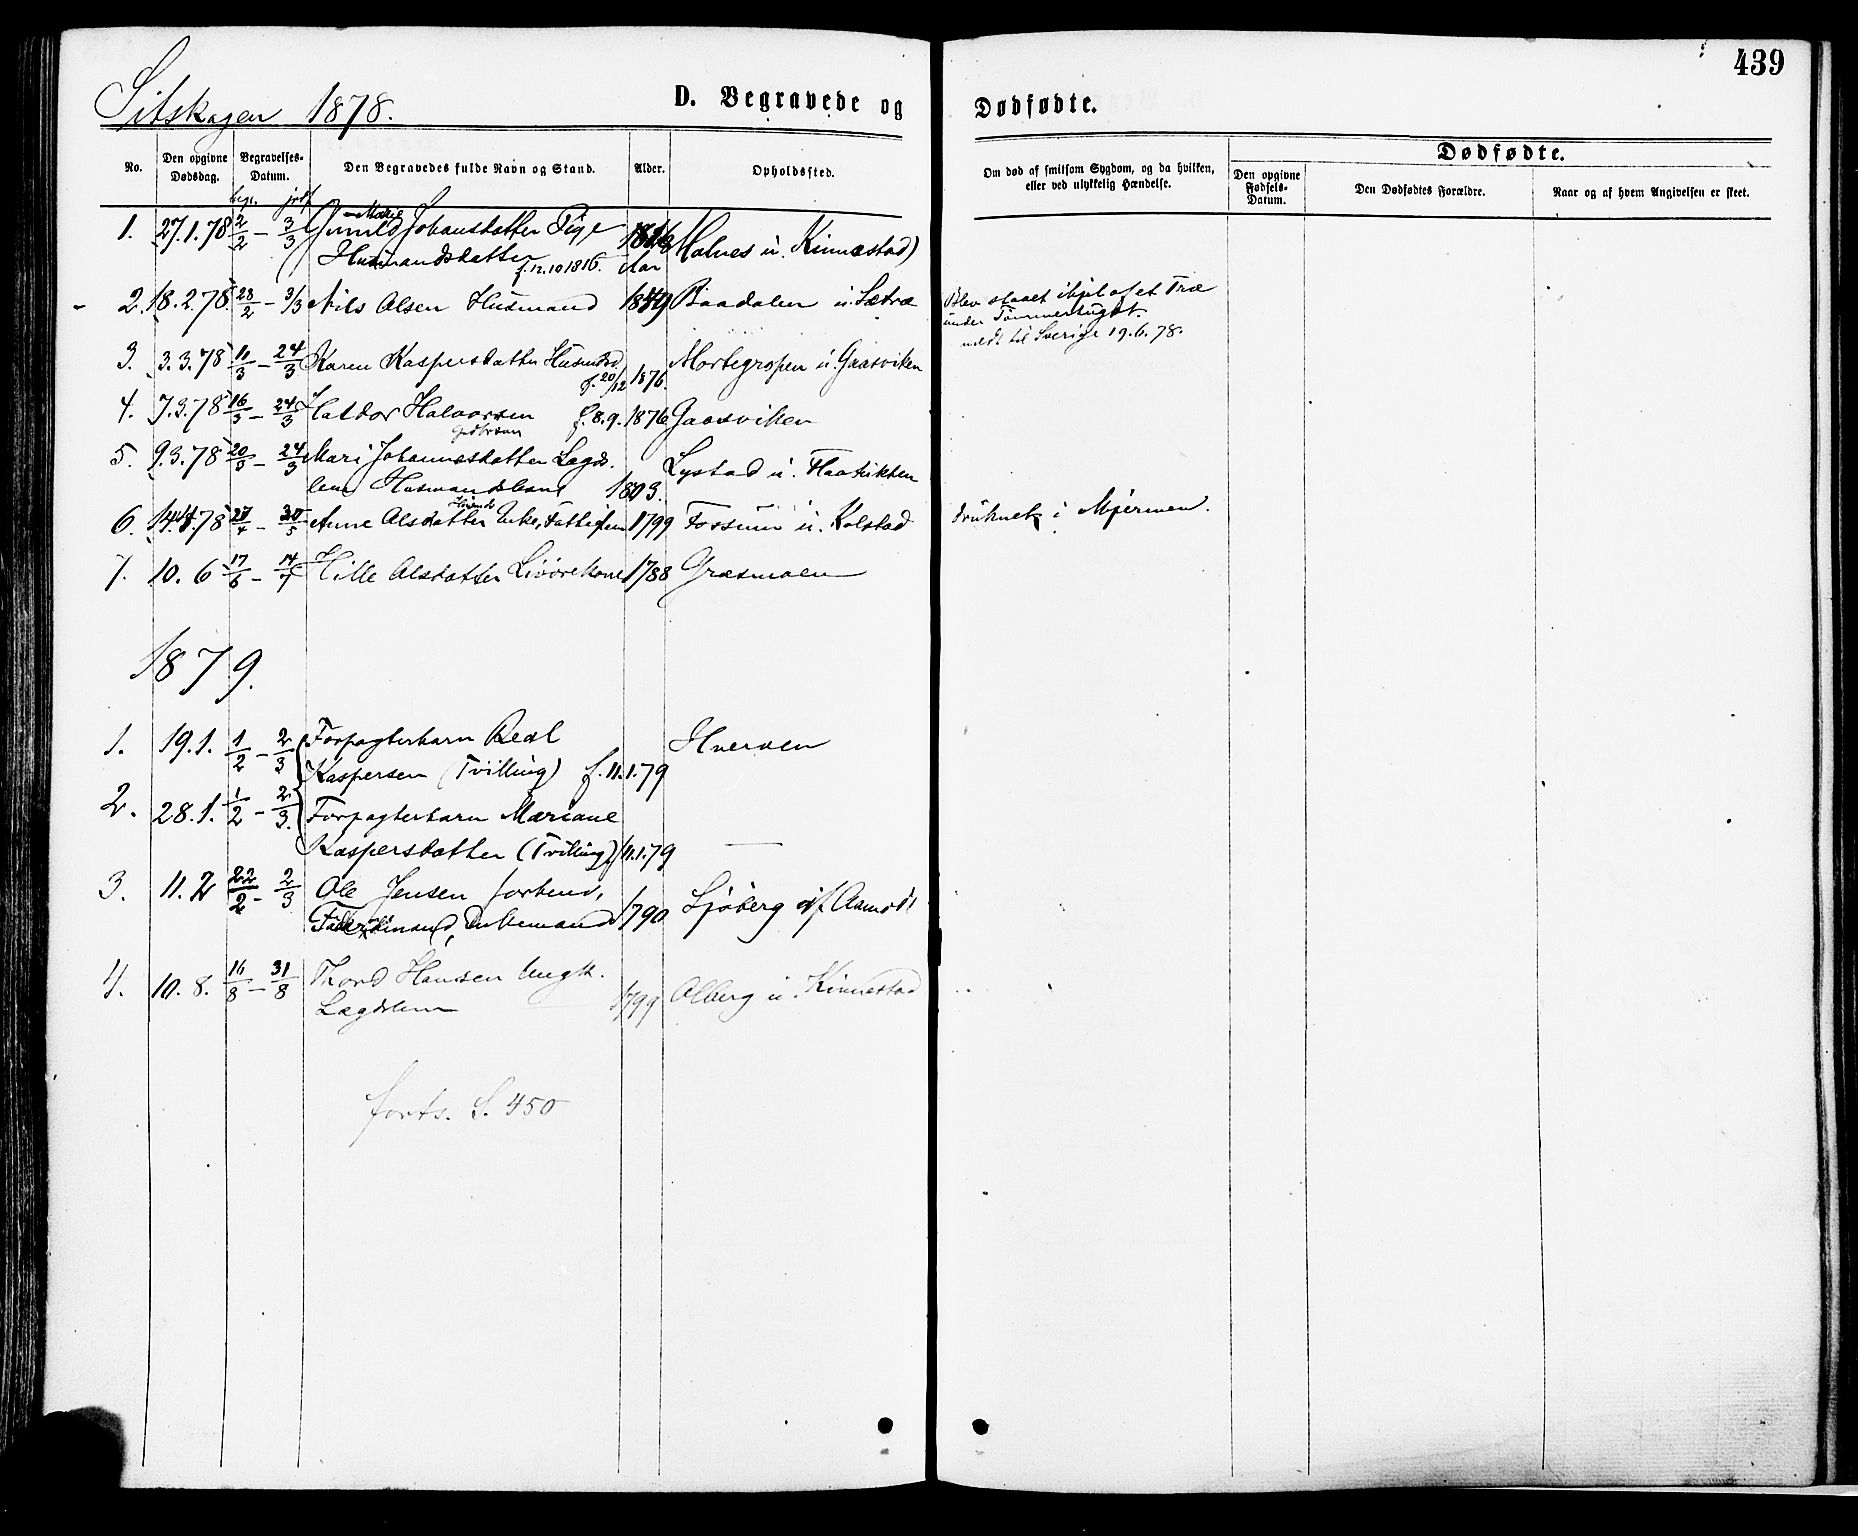 439
Sitskogen 1878.
D. Begravede og Dødfødte.
No.
Den opgivne Dødsdag.
Begravelses-Datum.
Den Begravedes fulde Navn og Stand.
Alder.
Opholdssted.
Om død af smitsom Sygdom, og da hvilken, eller ved ulykkelig Hændelse.
Dødfødte.
Den opgivne Fødsels-Datum.
Den Dødfødtes Forældre.
Naar og af hvem Angivelsen er skeet.
beg. jordf
1. 27.1.78 2/2 - 3/3 Gunild Marie Johansdatter Pige Holnes u. Kinnestad)
Husmandsdatter f. 12.10 1816. Aar
2. 18.2.78. 23/2 - 3/3 Nils Olsen Husmand Baadalen u. Sætræ
Blev slaaet ihjel af et Træ
under Tømmerhugst.
meldt til Sverige 19.6.78.
3. 3.3.78 11/3 - 24/3 Karen Kaspersdatter f. 20/12 1876. Mortegropen u. Gaasviken
4. 7.3.78 16/3 - 24/3 Haldor Halvorsen f. 8.9. 1876 Gaasviken
5. 9.3.78 20/3 - 24/3 Mari Johannesdatter Lægds-
lem Husmandskone 1803. Lystad u.
6. 14.4.78 27/4 - 30/5 Anne Olsdatter Enke, Fattiglem 1799 Fossum u. Kolstad druknet i Mjermen.
7. 10.6 17/6 - 14/7 Hille Olsdatter Livørekone 1788 Græsmoen
1879.
1. 19.1. 1/2 - 2/3 Forpagterbarn Bedl
Kaspersen (Tvilling) f. 11.1.79 Hverven
2. 28.1. 1/2 - 2/3. Forpagterbarn Mariane
Kaspersdatter (Tvilling) 11.1.79 —
3. 11.2 22/2 - 2/3 Ole Jensen forhend,
1790 Sjøberg
4. 10.8. 16/8 - 31/8 Thord Hansen Ungk.
Lægdslem 1799 Olberg u. Kinnestad
forts. S. 450